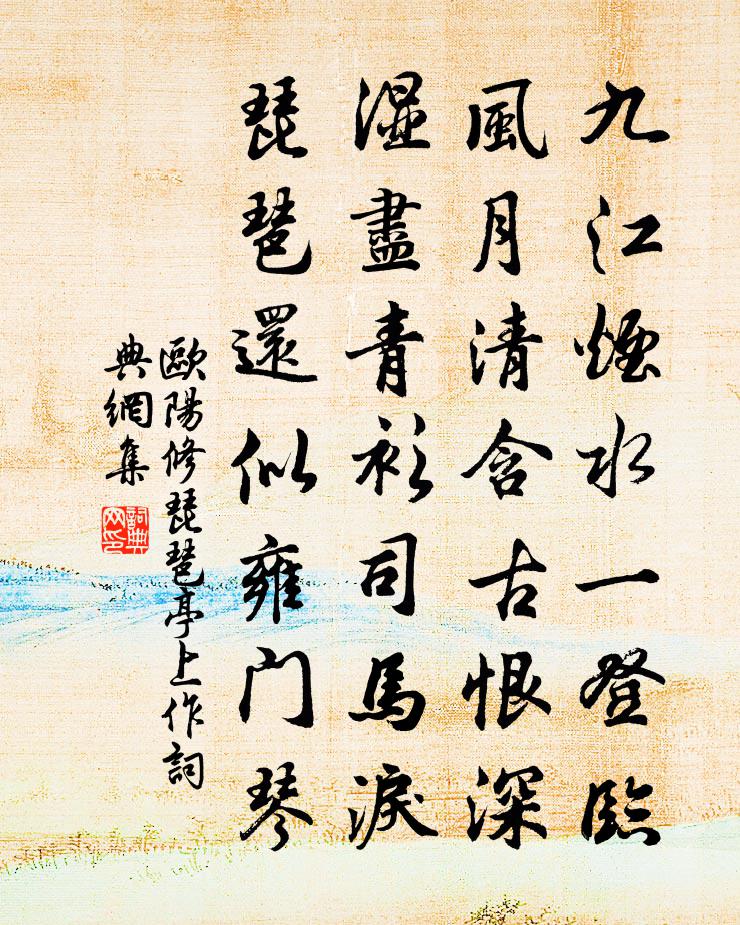 九江煙水一登臨
風月清含古恨深
濕盡青衫司馬淚
琵琶還似雍門琴
歐陽修琵琶亭上作詞
典網集
詞典
网印